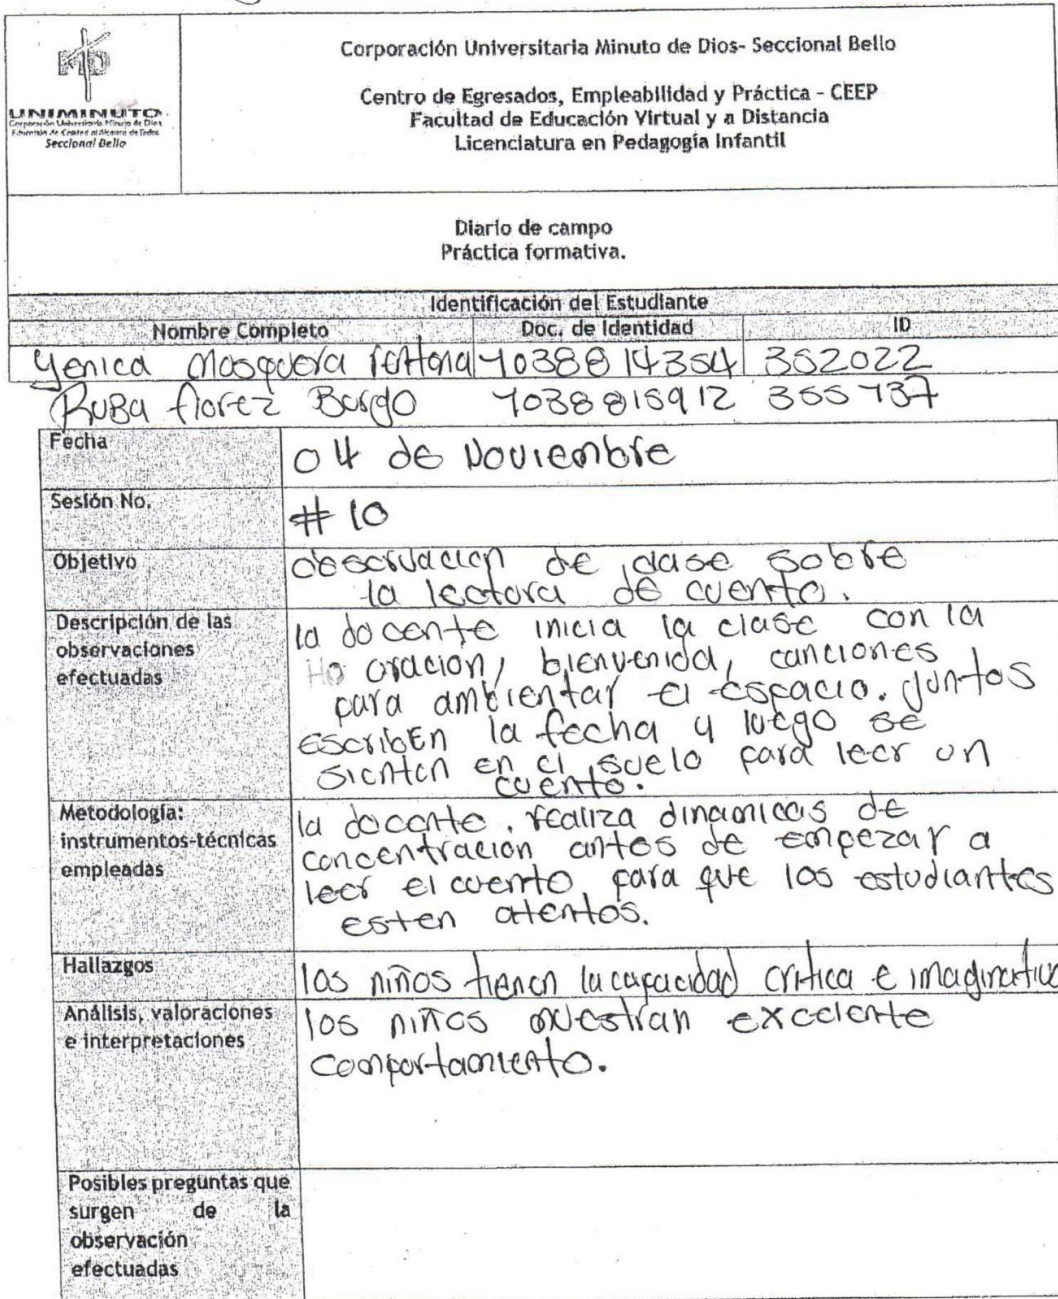 UNIMINUTO
Corporación Universitaria Minuto de Dios
Educación de Calidad al Alcance de Todos
Seccional Bello
Corporación Universitaria Minuto de Dios- Seccional Bello
Centro de Egresados, Empleabilidad y Práctica - CEEP
Facultad de Educación Virtual y a Distancia
Licenciatura en Pedagogía Infantil
Diario de campo
Práctica formativa.
Identificación del Estudiante
Nombre Completo Doc. de Identidad ID
Yenica Mosquera 1038814354 352022
florez 1038815912 355737
Fecha
04 de Noviembre
Sesión No.
#10
Objetivo
observacion de clase sobre
la lectura de cuento.
Descripción de las
observaciones
efectuadas
la docente inicia la clase con la
oracion, bienvenida, canciones
para ambientar el espacio. juntos
escriben la fecha y luego se
sienten en el suelo para leer un
cuento.
Metodología:
instrumentos-técnicas
empleadas
la docente. realiza dinamicas de
concentracion antes de empezar a
leer el cuento, para que los estudiantes
esten atentos.
Hallazgos
los niños tienen la capacidad critica e imaginativa
Análisis, valoraciones
e interpretaciones
los niños muestran excelente
comportamiento.
Posibles preguntas que
surgen de la
observación
efectuadas